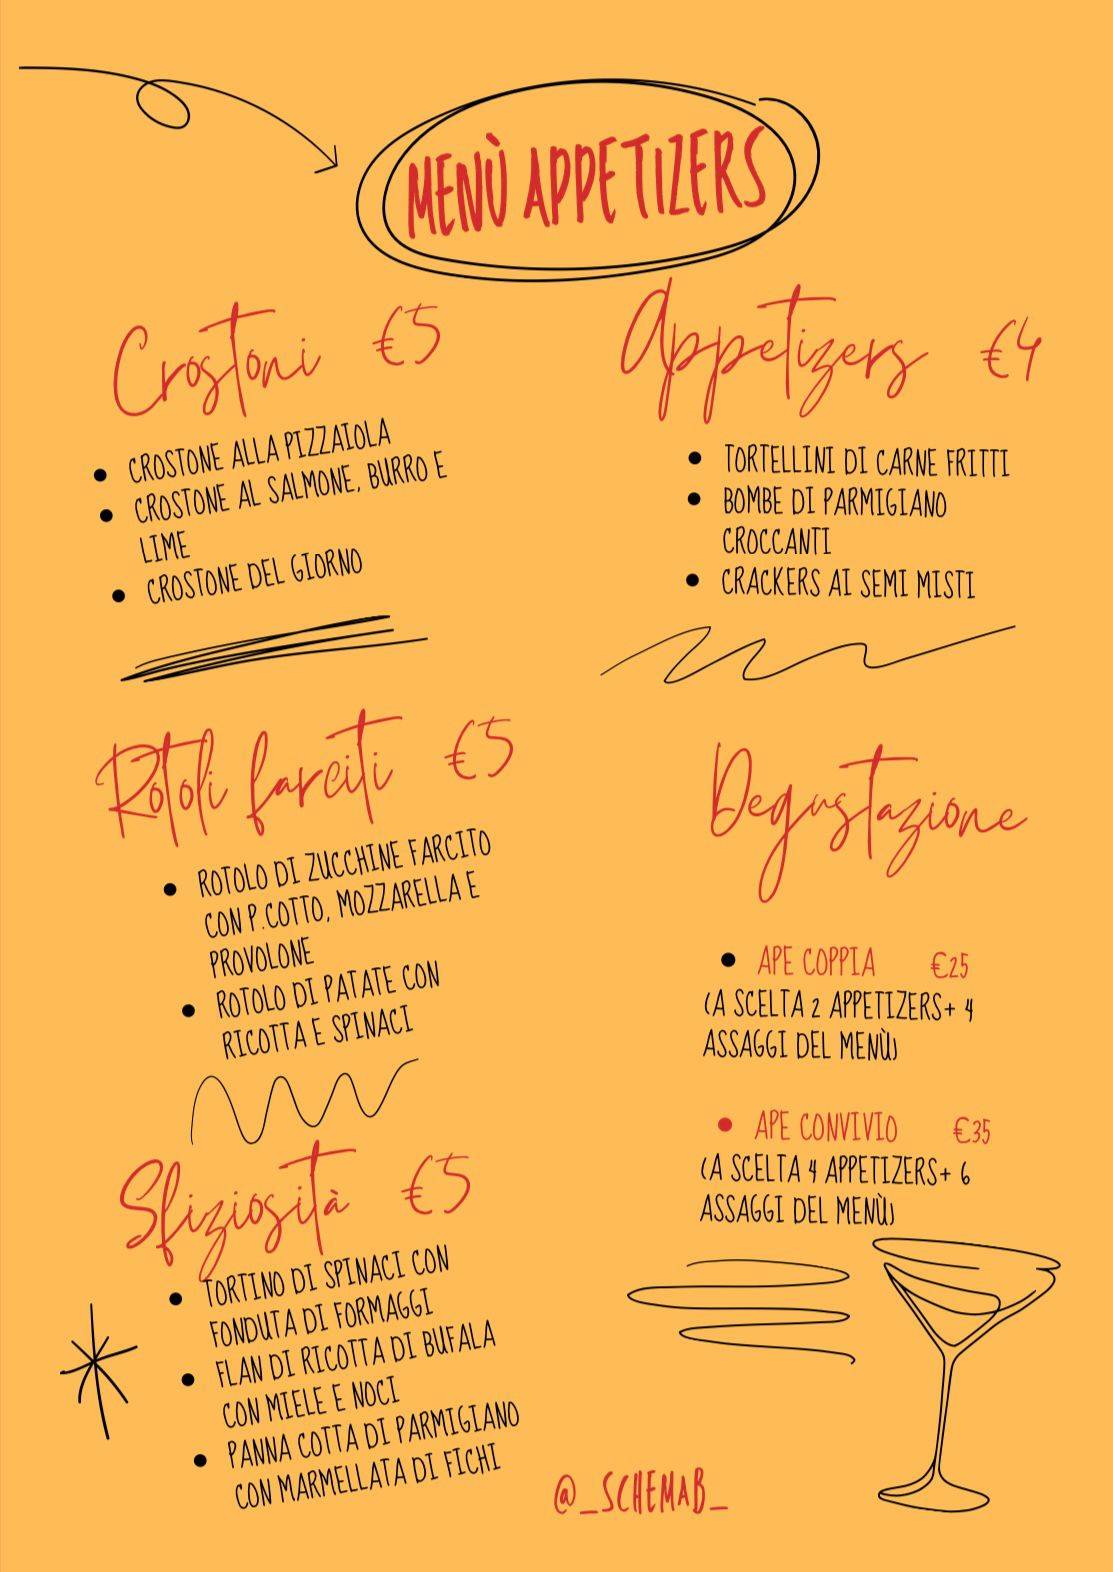 MENÙ APPETIZERS
Crostoni €5
CROSTONE ALLA PIZZAIOLA
CROSTONE AL SALMONE, BURRO E
LIME
CROSTONE DEL GIORNO
Appetizers €4
TORTELLINI DI CARNE FRITTI
BOMBE DI PARMIGIANO
CROCCANTI
CRACKERS AI SEMI MISTI
Rotoli farciti €5
ROTOLO DI ZUCCHINE FARCITO
CON P.COTTO, MOZZARELLA E
PROVOLONE
ROTOLO DI PATATE CON
RICOTTA E SPINACI
Sfiziosità €5
TORTINO DI SPINACI CON
FONDUTA DI FORMAGGI
FLAN DI RICOTTA DI BUFALA
CON MIELE E NOCI
PANNA COTTA DI PARMIGIANO
CON MARMELLATA DI FICHI
Degustazione
APE COPPIA €25
(A SCELTA 2 APPETIZERS+ 4
ASSAGGI DEL MENÙ)
APE CONVIVIO €35
(A SCELTA 4 APPETIZERS+ 6
ASSAGGI DEL MENÙ)
@_SCHEMAB_